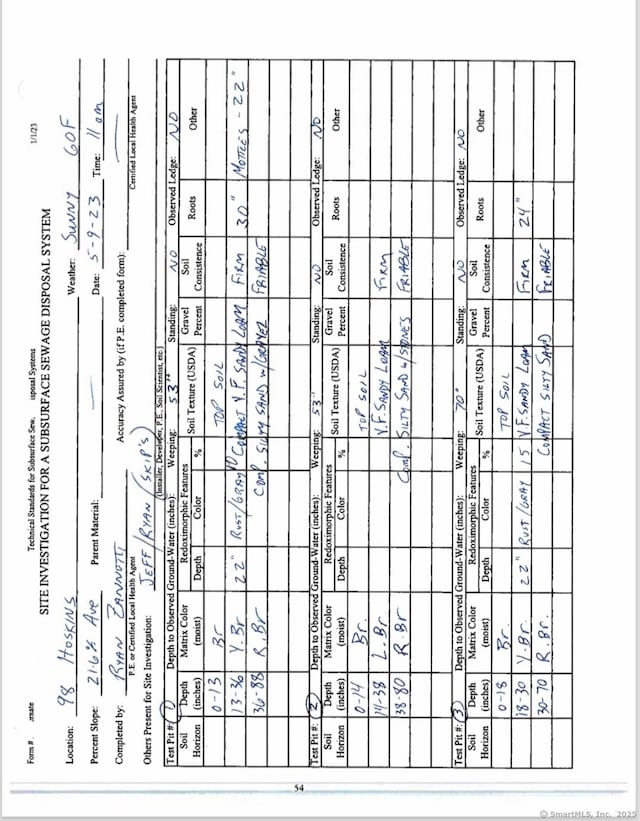 Form # . rmate Technical Standards for Subsurface Sew. isposal Systems 1/1/23
SITE INVESTIGATION FOR A SUBSURFACE SEWAGE DISPOSAL SYSTEM
Location: 98 HOSKINS Weather: SUNNY 60F
Percent Slope: 21.6% Ave Parent Material: — Date: 5-9-23 Time: 11 am
Completed by: RYAN ZANNOTTI Accuracy Assured by (if P.E. completed form): —
P.E. or Certified Local Health Agent Certified Local Health Agent
Others Present for Site Investigation: JEFF/RYAN (SKIP'S)
(Installer, Developer, P.E., Soil Scientist, etc.)
Test Pit #: 1 Depth to Observed Ground-Water (inches): Weeping: 53" Standing: NO Observed Ledge: NO
Soil Horizon Depth (inches) Matrix Color (moist) Redoximorphic Features Depth Color % Soil Texture (USDA) Gravel Percent Soil Consistence Roots Other
0-13 Br TOP SOIL
13-36 Y.Br 22" RUST/GRAY 10 COMPACT V.F. SANDY LOAM FIRM 30" MOTTLES - 22"
36-88 R.Br COMP. SILTY SAND W/GRAVEL FRIABLE
Test Pit #: 2 Depth to Observed Ground-Water (inches): Weeping: 53" Standing: NO Observed Ledge: NO
Soil Horizon Depth (inches) Matrix Color (moist) Redoximorphic Features Depth Color % Soil Texture (USDA) Gravel Percent Soil Consistence Roots Other
0-14 Br. TOP SOIL
14-38 L.Br V.F. SANDY LOAM FIRM
38-80 R.Br COMP. SILTY SAND W/STONES FRIABLE
Test Pit #: 3 Depth to Observed Ground-Water (inches): Weeping: 70" Standing: NO Observed Ledge: NO
Soil Horizon Depth (inches) Matrix Color (moist) Redoximorphic Features Depth Color % Soil Texture (USDA) Gravel Percent Soil Consistence Roots Other
0-18 Br. TOP SOIL
18-30 Y.Br. 22" RUST/GRAY 15 V.F. SANDY LOAM FIRM 24"
30-70 R.Br. COMPACT SILTY SAND FRIABLE
54
© SmartMLS, Inc. 2025